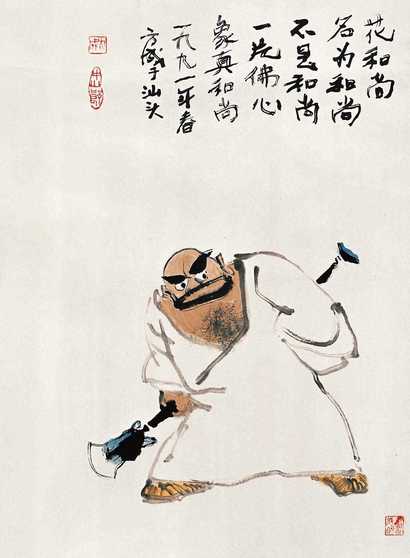 花和尚
名为和尚
不是和尚
一片佛心
象真和尚
一九九一年春
方成于汕头